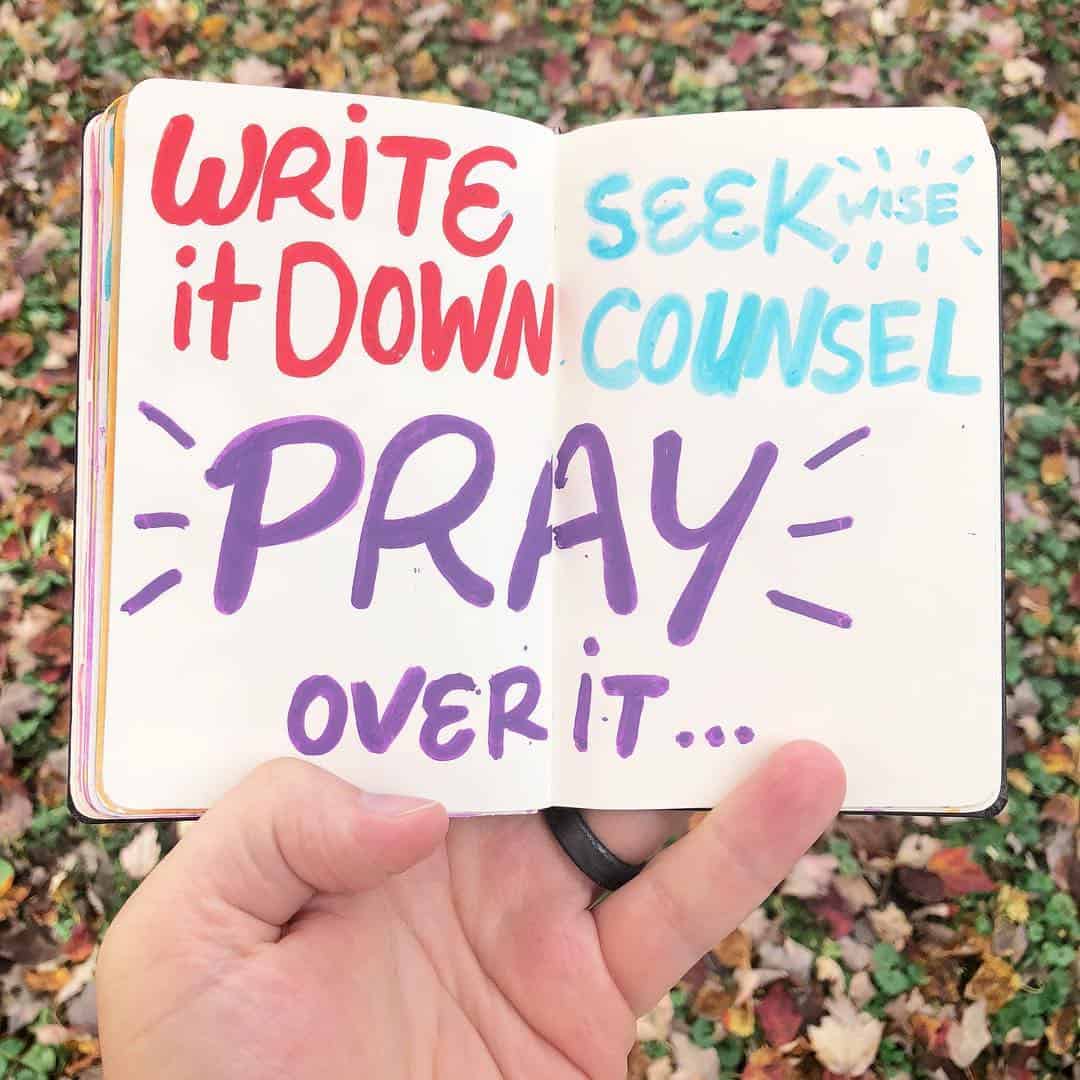 WRiTE
it DOWN
SEEK WISE
COUNSEL
PRAY
OVER iT...